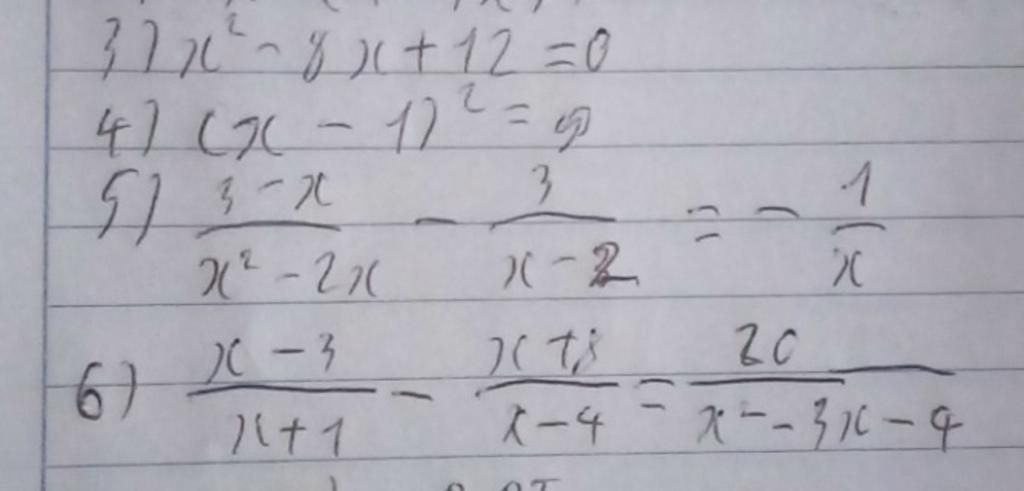 3) x² - 8x + 12 = 0
4) (x - 1)² =
5) (3 - x)/(x² - 2x) - 3/(x - 2) = - 1/x
6) (x - 3)/(x + 1) - (x +)/(x - 4) = 20/(x² - 3x - 4)